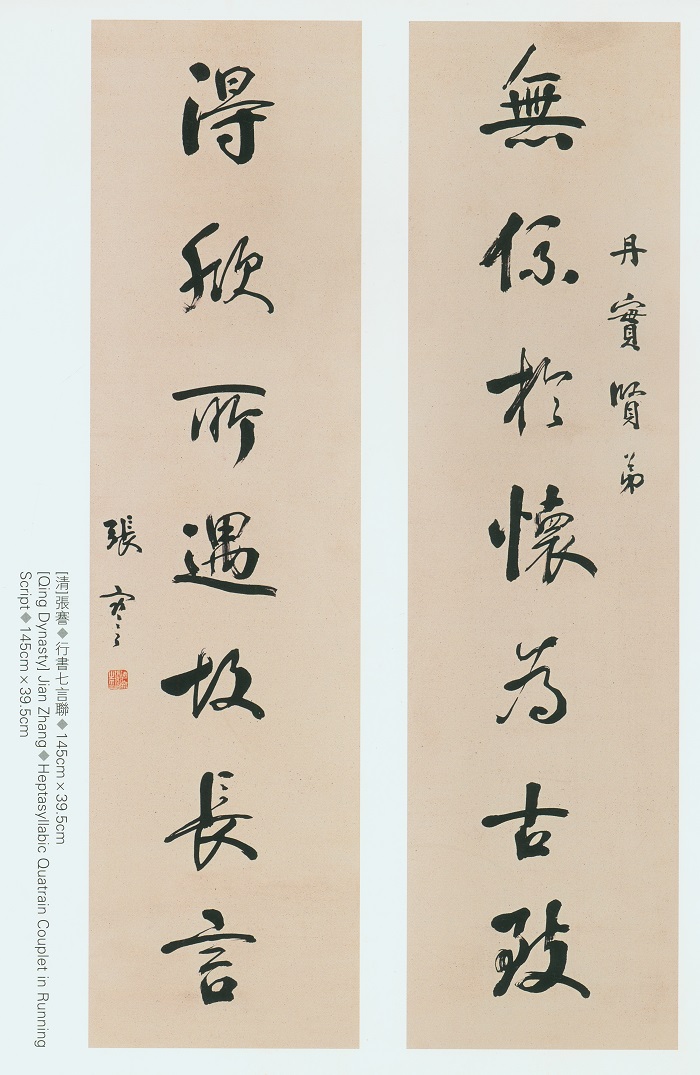 丹實賢弟
無係於懷為古致
得欣所遇故長言
張謇
[清]張謇◆行書七言聯◆145cm×39.5cm
[Qing Dynasty] Jian Zhang◆Heptasyllabic Quatrain Couplet in Running
Script◆145cm×39.5cm